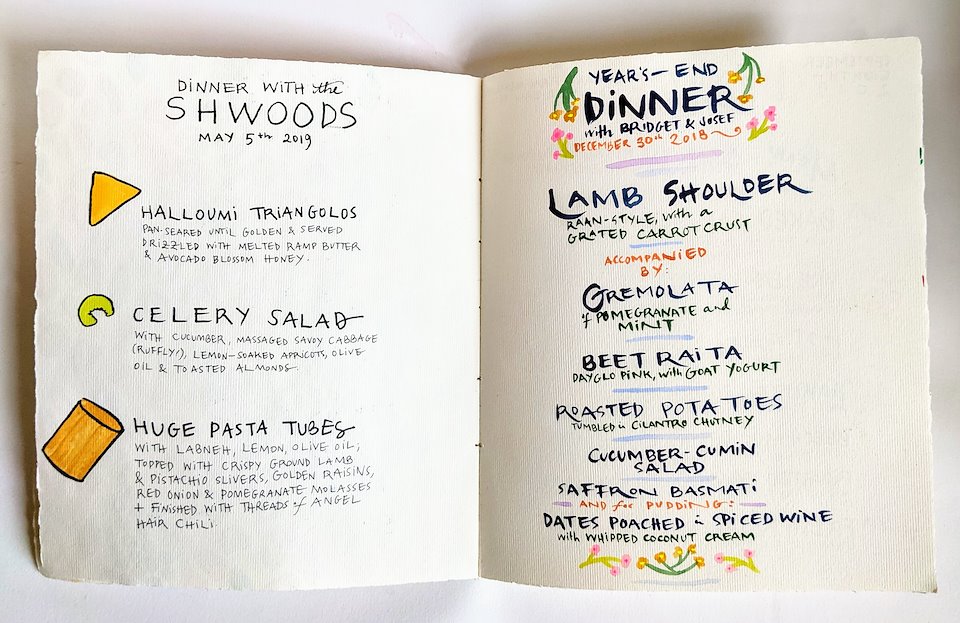 DINNER WITH the
SHWOODS
MAY 5th 2019
HALLOUMI TRIANGOLOS
PAN-SEARED UNTIL GOLDEN & SERVED
DRIZZLED WITH MELTED RAMP BUTTER
& AVOCADO BLOSSOM HONEY.
CELERY SALAD
WITH CUCUMBER, MASSAGED SAVOY CABBAGE
(RUFFLY!), LEMON-SOAKED APRICOTS, OLIVE
OIL & TOASTED ALMONDS.
HUGE PASTA TUBES
WITH LABNEH, LEMON, OLIVE OIL;
TOPPED WITH CRISPY GROUND LAMB
& PISTACHIO SLIVERS, GOLDEN RAISINS,
RED ONION & POMEGRANATE MOLASSES
+ FINISHED WITH THREADS of ANGEL
HAIR CHILI.
YEAR'S-END
DINNER
with BRIDGET & JOSEF
DECEMBER 30th 2018
LAMB SHOULDER
RAAN-STYLE, with a
GRATED CARROT CRUST
ACCOMPANIED
BY:
GREMOLATA
of POMEGRANATE and
MINT
BEET RAITA
DAYGLO PINK, with GOAT YOGURT
ROASTED POTATOES
TUMBLED in CILANTRO CHUTNEY
CUCUMBER-CUMIN
SALAD
SAFFRON BASMATI
AND for PUDDING:
DATES POACHED in SPICED WINE
with WHIPPED COCONUT CREAM